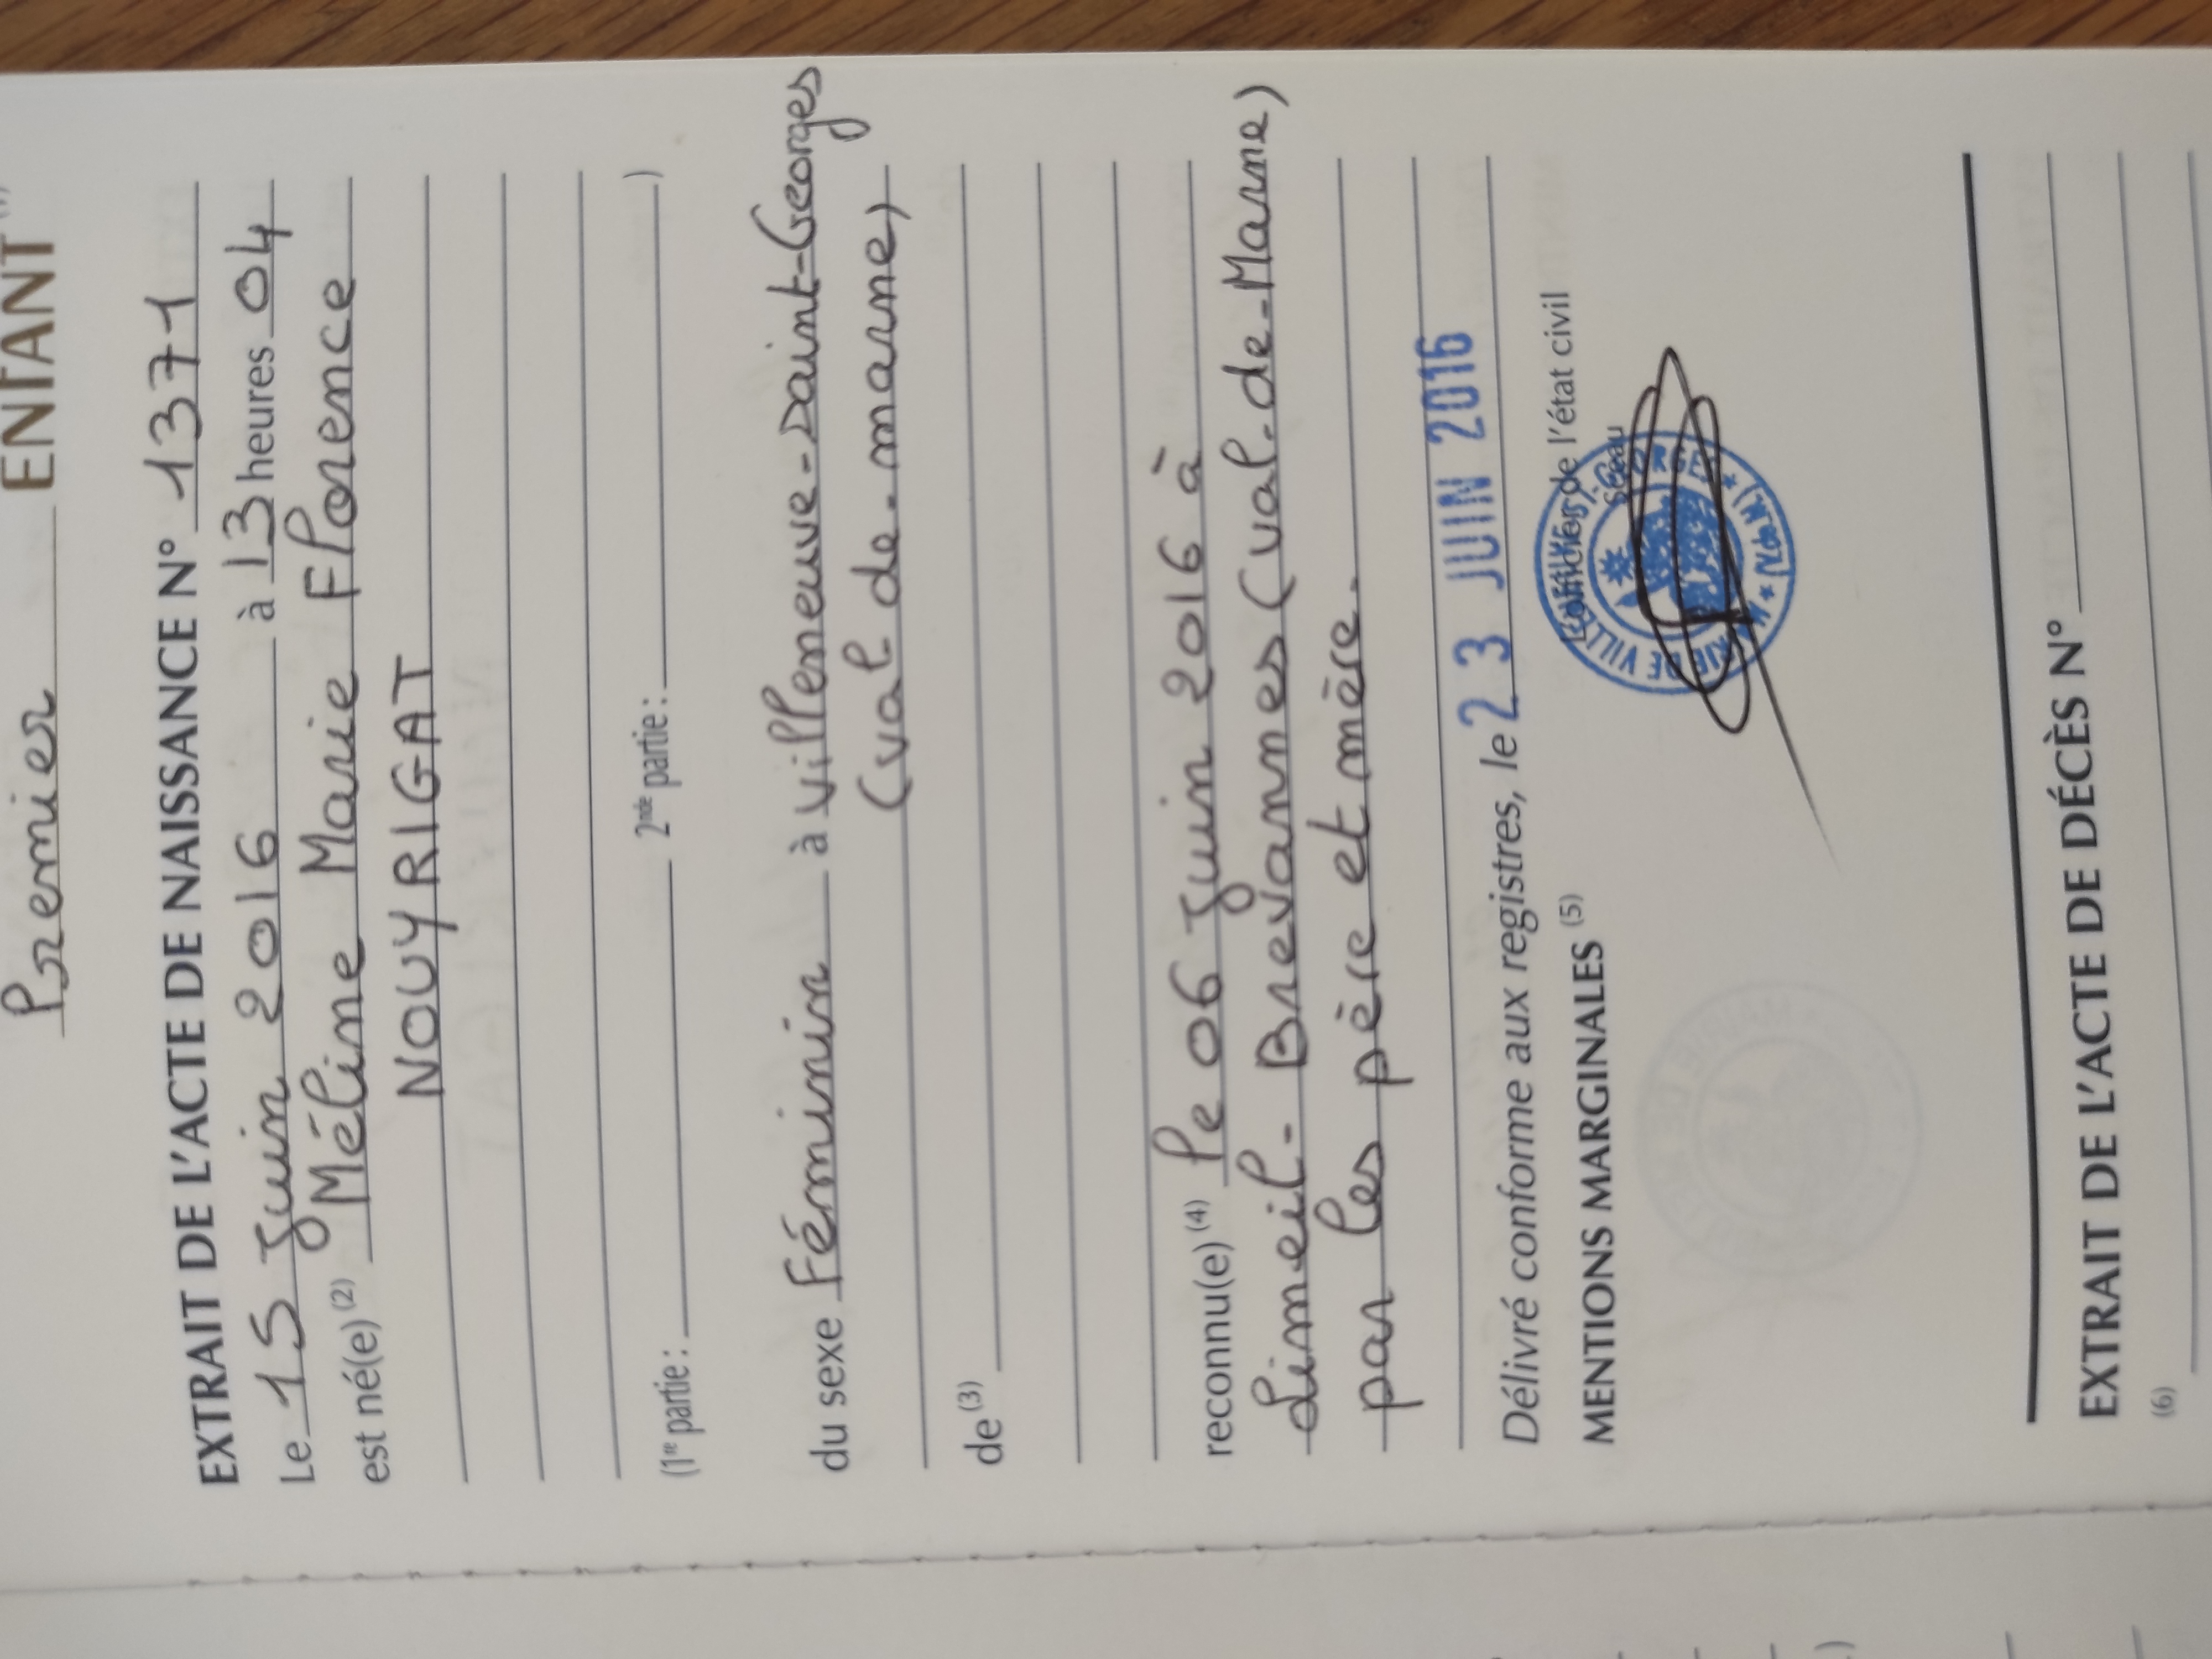 Premier ENFANT
EXTRAIT DE L'ACTE DE NAISSANCE N° 1371
Le 15 Juin 2016 à 13 heures 04
est né(e) (2) Méline Marie Florence
NOUYRIGAT
(1re partie : 2nde partie : )
du sexe Féminin à Villeneuve-Saint-Georges
(Val-de-Marne)
de (3)
reconnu(e) (4) le 06 Juin 2016 à
Limeil-Brevannes (Val-de-Marne)
par les père et mère.
Délivré conforme aux registres, le 23 JUIN 2016
L'officier de l'état civil
Sceau
MENTIONS MARGINALES (5)
EXTRAIT DE L'ACTE DE DÉCÈS N°
(6)